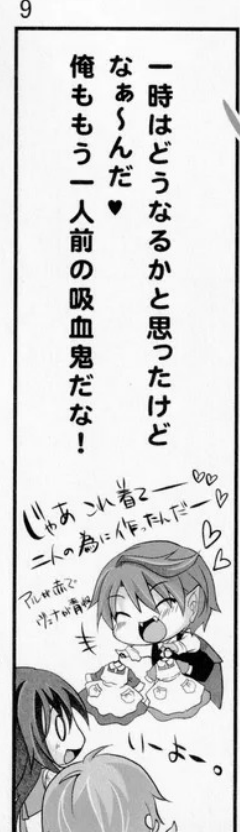 9
一時はどうなるかと思ったけど
なぁ〜んだ♥
俺ももう一人前の吸血鬼だな！
じゃあこれ着てー♡♡
二人の為に作ったんだー♡♡
アルが赤で
いーよー。